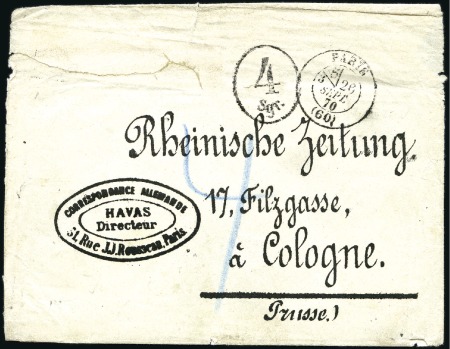 4
Sgr.
PARIS
26
SEPT.
70
(60)
Rheinische Zeitung
17, Filzgasse,
à Cologne.
Prusse.)
CORRESPONDANCE ALLEMANDE
HAVAS
Directeur
51, Rue J.J. Rousseau, Paris
4